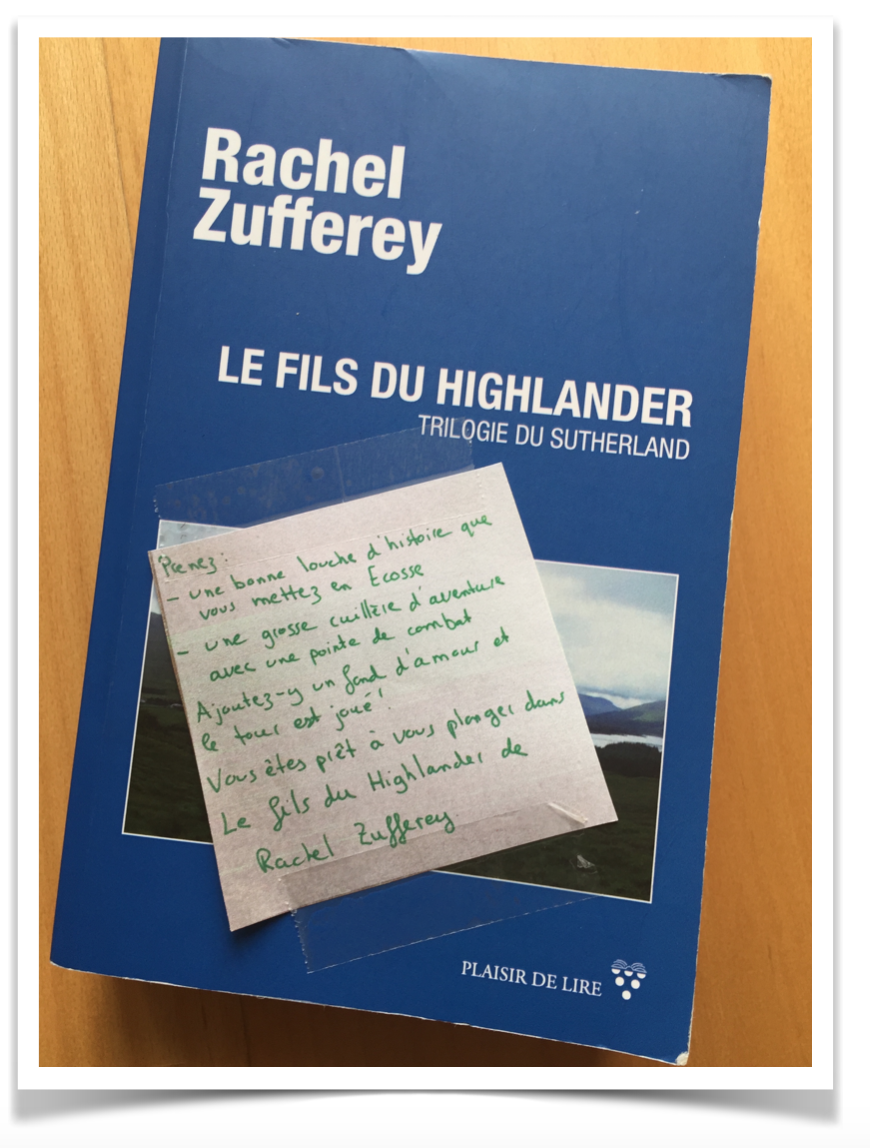 Rachel
Zufferey
LE FILS DU HIGHLANDER
TRILOGIE DU SUTHERLAND
Prenez :
- une bonne louche d'histoire que
vous mettez en Ecosse
- une grosse cuillère d'aventure
avec une pointe de combat
Ajoutez-y un fond d'amour et
le tour est joué !
Vous êtes prêt à vous plonger dans
Le fils du Highlander de
Rachel Zufferey
PLAISIR DE LIRE